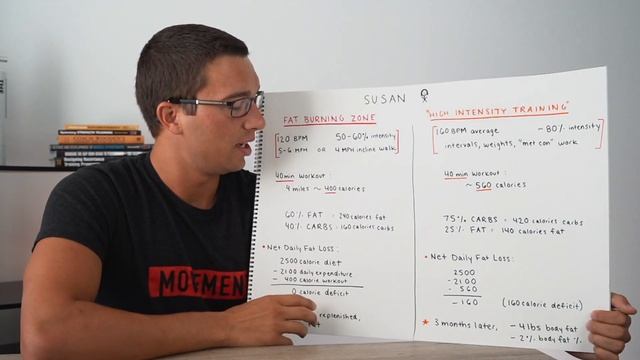 SUSAN
FAT BURNING ZONE
120 BPM 50-60% intensity
5-6 MPH OR 4 MPH incline walk
40min WORKOUT:
4 miles ~ 400 calories
60% FAT = 240 calories fat
40% CARBS = 160 calories carbs
• Net Daily Fat Loss:
2500 calorie diet
- 2100 daily expenditure
- 400 calorie workout
0 calorie deficit
replenished,
"HIGH INTENSITY TRAINING"
160 BPM average ~ 80% intensity
intervals, weights, "met con" work
40 min workout:
~ 560 calories
75% CARBS = 420 calories carbs
25% FAT = 140 calories fat
• Net Daily Fat Loss:
2500
- 2100
- 560
- 160 (160 calorie deficit)
★ 3 months later, - 4 lbs body fat
- 2% body fat %
STRENGTH TRAINING